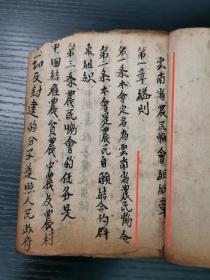 雲南省農民協會組織章
第一章總則
第一条本會定名為雲南省農民協會
第二条本會是農民自願結合的群
衆組織
第三条農民協會的任务是
甲團結雇農貧農中農及農村
一切反封建的分子遵照人民政府